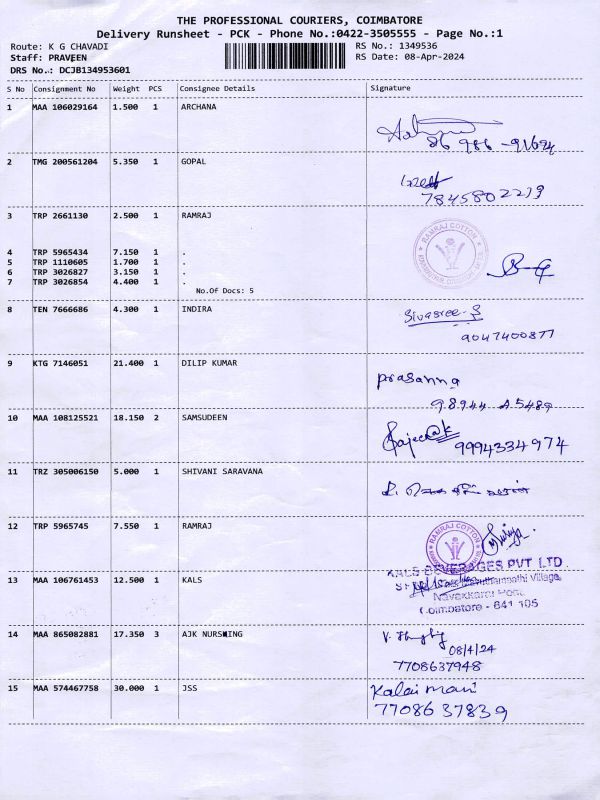 THE PROFESSIONAL COURIERS, COIMBATORE
Delivery Runsheet - PCK - Phone No.:0422-3505555 - Page No.:1
Route: K G CHAVADI RS No.: 1349536
Staff: PRAVEEN RS Date: 08-Apr-2024
DRS No.: DCJB134953601
S No Consignment No Weight PCS Consignee Details Signature
1 MAA 106029164 1.500 1 ARCHANA
86 986 -91694
2 TMG 200561204 5.350 1 GOPAL
7845802219
3 TRP 2661130 2.500 1 RAMRAJ
RAMRAJ COTTON
4 TRP 5965434 7.150 1 .
5 TRP 1110605 1.700 1 .
6 TRP 3026827 3.150 1 .
7 TRP 3026854 4.400 1 .
No.Of Docs: 5
8 TEN 7666686 4.300 1 INDIRA
Sivasree. S
9047400877
9 KTG 7146051 21.400 1 DILIP KUMAR
prasanna
98944 25489
10 MAA 108125521 18.150 2 SAMSUDEEN
9994334974
11 TRZ 305006150 5.000 1 SHIVANI SARAVANA
12 TRP 5965745 7.550 1 RAMRAJ
RAMRAJ COTTON
KALS BEVERAGES PVT LTD
13 MAA 106761453 12.500 1 KALS
Village,
Navakkarai Post,
Coimbatore - 641 105
14 MAA 865082881 17.350 3 AJK NURSHING
08/4/24
7708637948
15 MAA 574467758 30.000 1 JSS
Kalai mani
7708637839